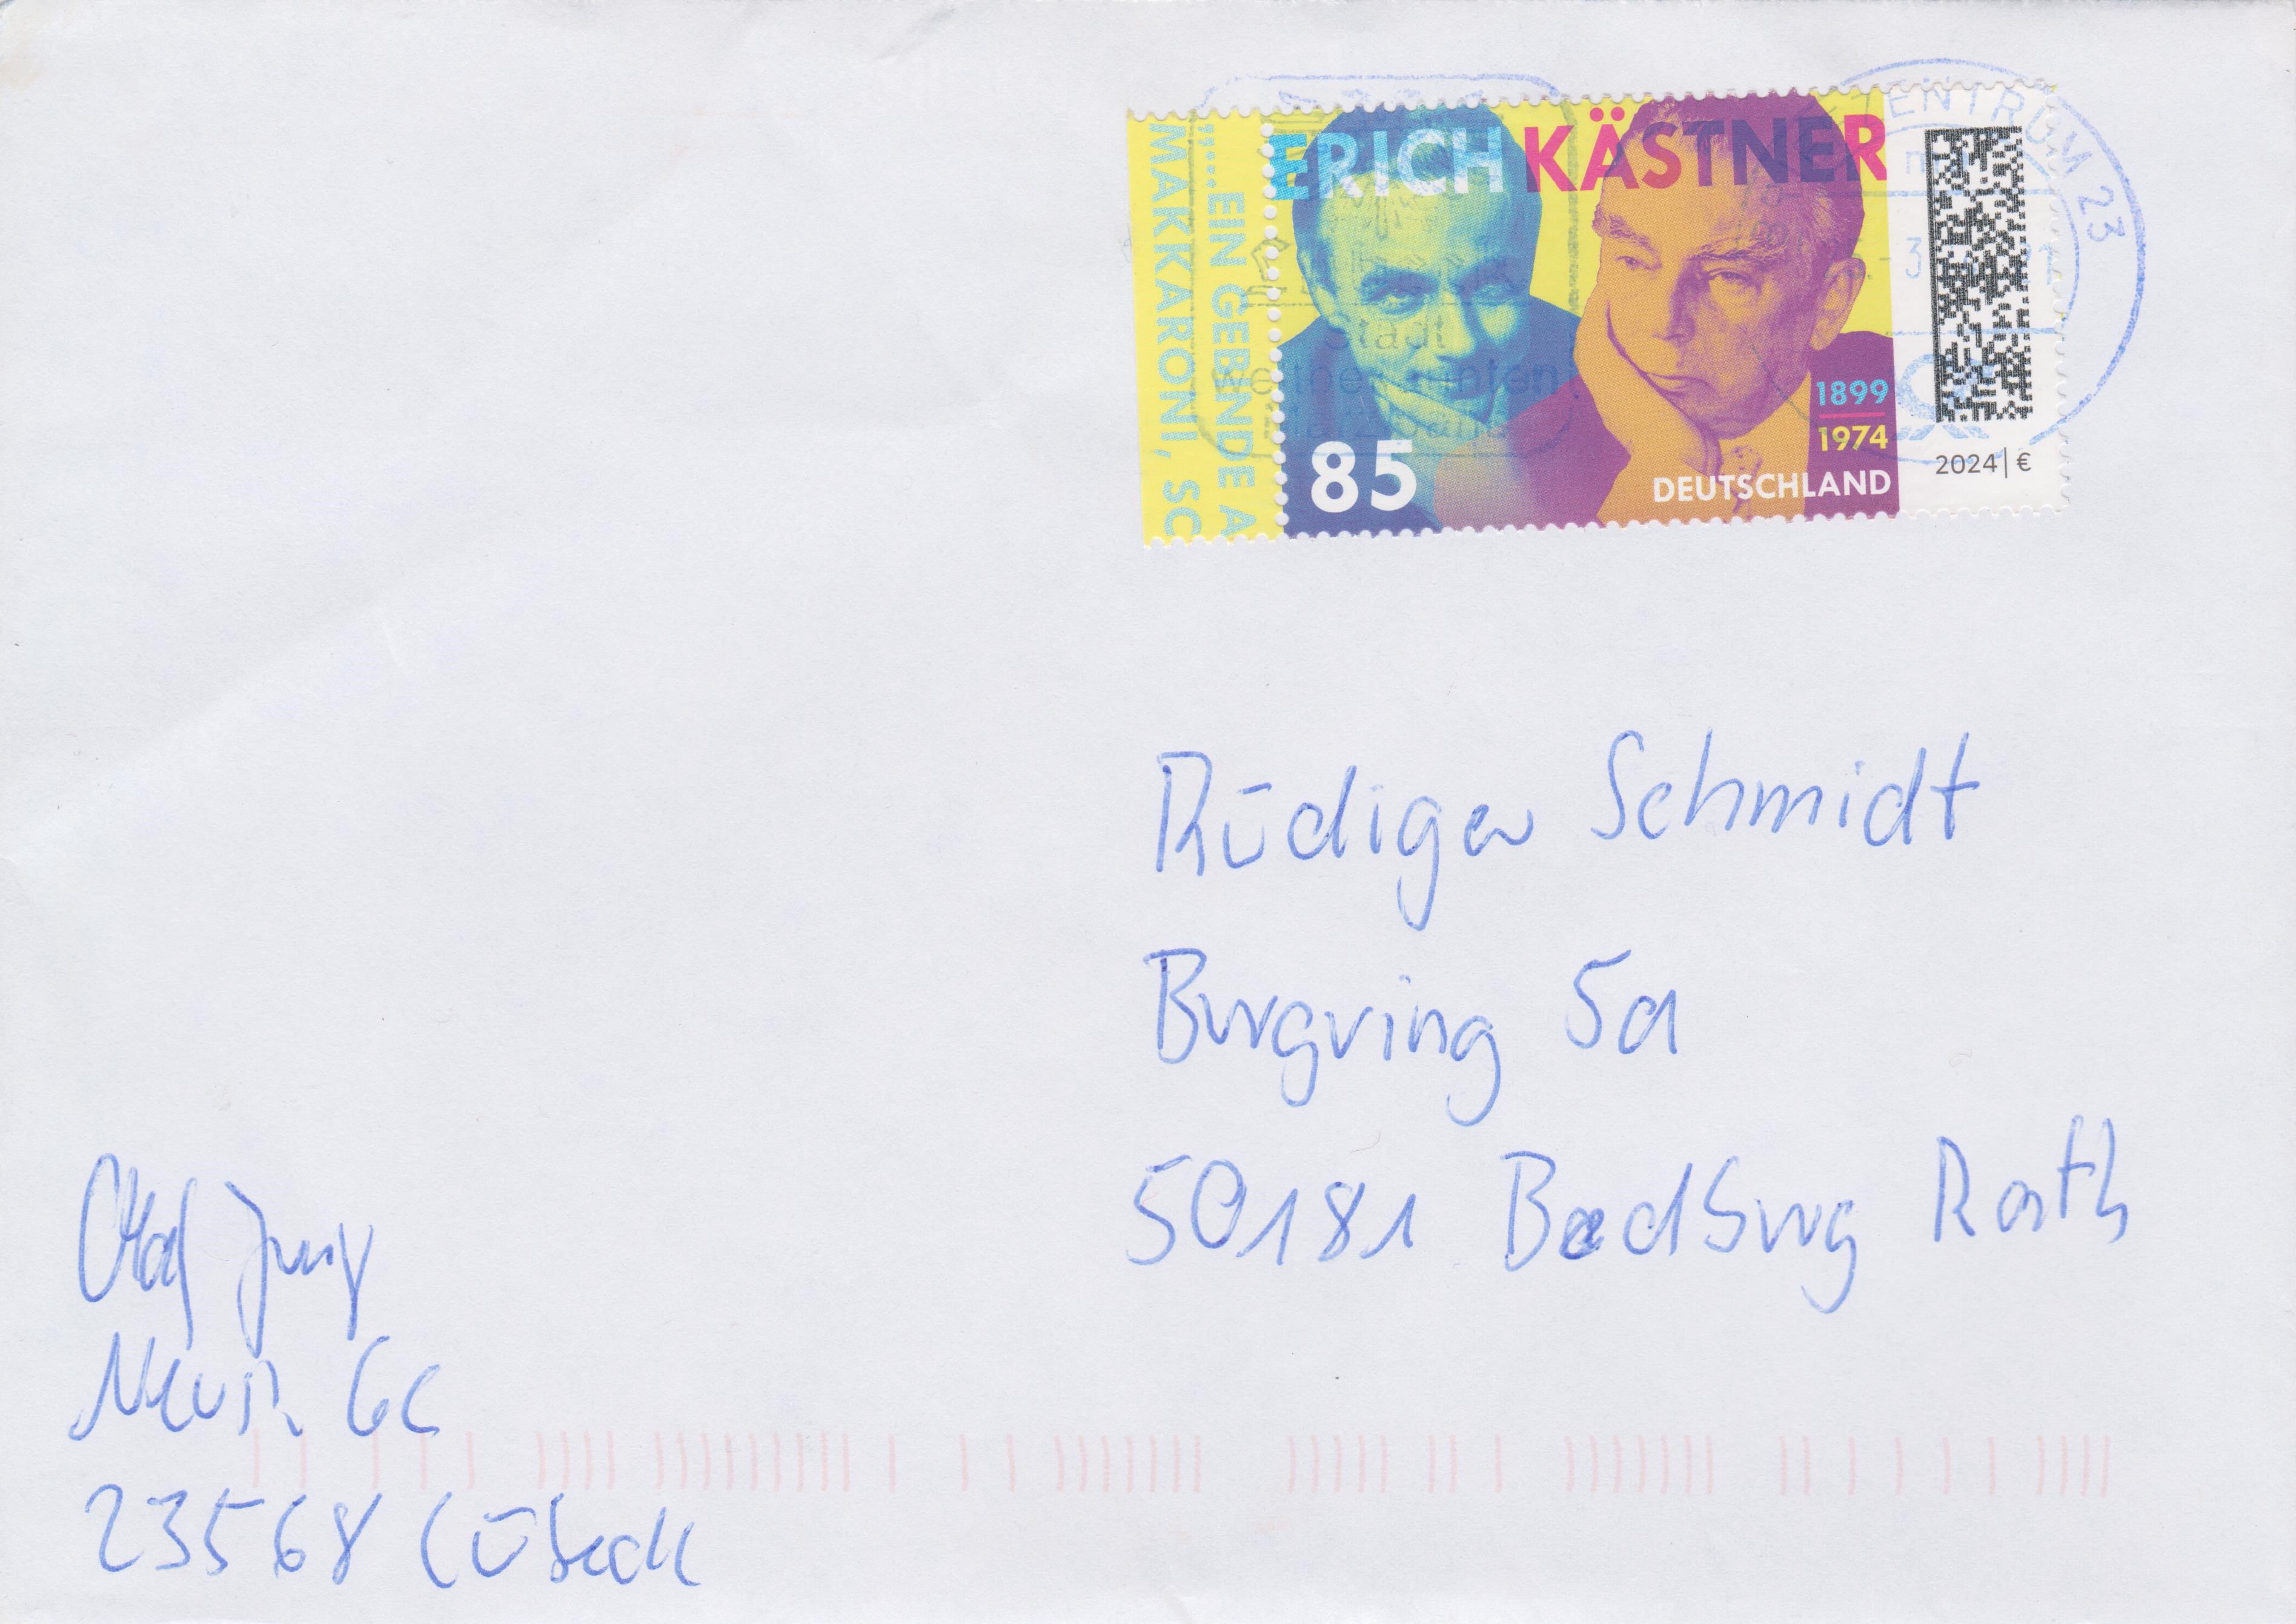 „....EIN GEBINDE A
MAKKARONI, SC
ERICH KÄSTNER
1899
1974
85
DEUTSCHLAND
2024 | €
ZENTRUM 23
Stadt
Rüdiger Schmidt
Burgring 5a
50181 Bedburg Rath
Olaf Jung
6c
23568 Lübeck